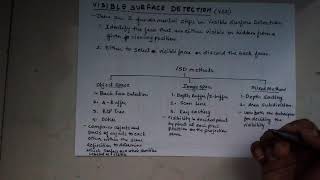 VISIBLE SURFACE DETECTION (VSD)
- There are 2 fundamental steps in Visible Surface Detection.
1. Identify the faces that are either visible or hidden from a
given viewing position
2. Either to select a visible face or discard the back faces.
VSD methods
Object Space
1. Back Face Detection
2. A-Buffer
3. BSP Tree
4. Octree
- compares objects and
parts of objects to each
other within the scene
definition to determine
which surfaces
Image Space
1. Depth Buffer/Z-Buffer
2. Scan Line
3. Ray Casting
- Visibility is decided point
by point at each pixel
position on the projection
Mixed Method
1. Depth Sorting
2. Area Subdivision
- use both the techniques
for deciding the
visibility